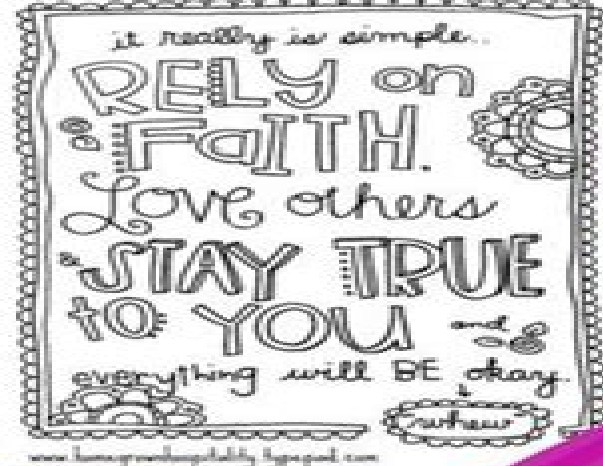 it really is simple...
RELY on
FaITH.
Love others
& STAY TRUE
to YOU and
everything will BE okay.
whew
www.homegrownhospitality.typepad.com